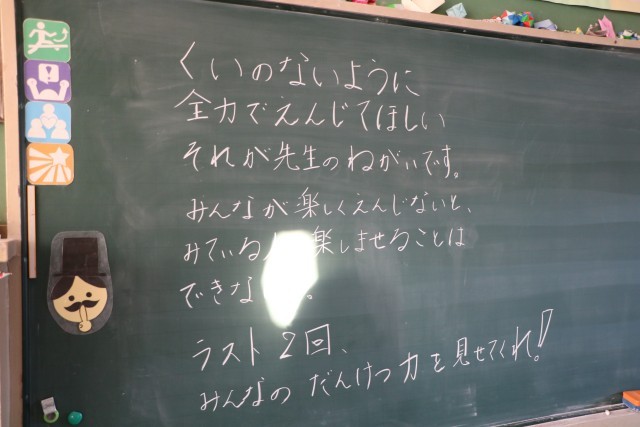 くいのないように
全力でえんじてほしい
それが先生のねがいです。
みんなが楽しくえんじないと、
みている 楽しませることは
できな 。
ラスト2回、
みんなの だんけつ力を見せてくれ!